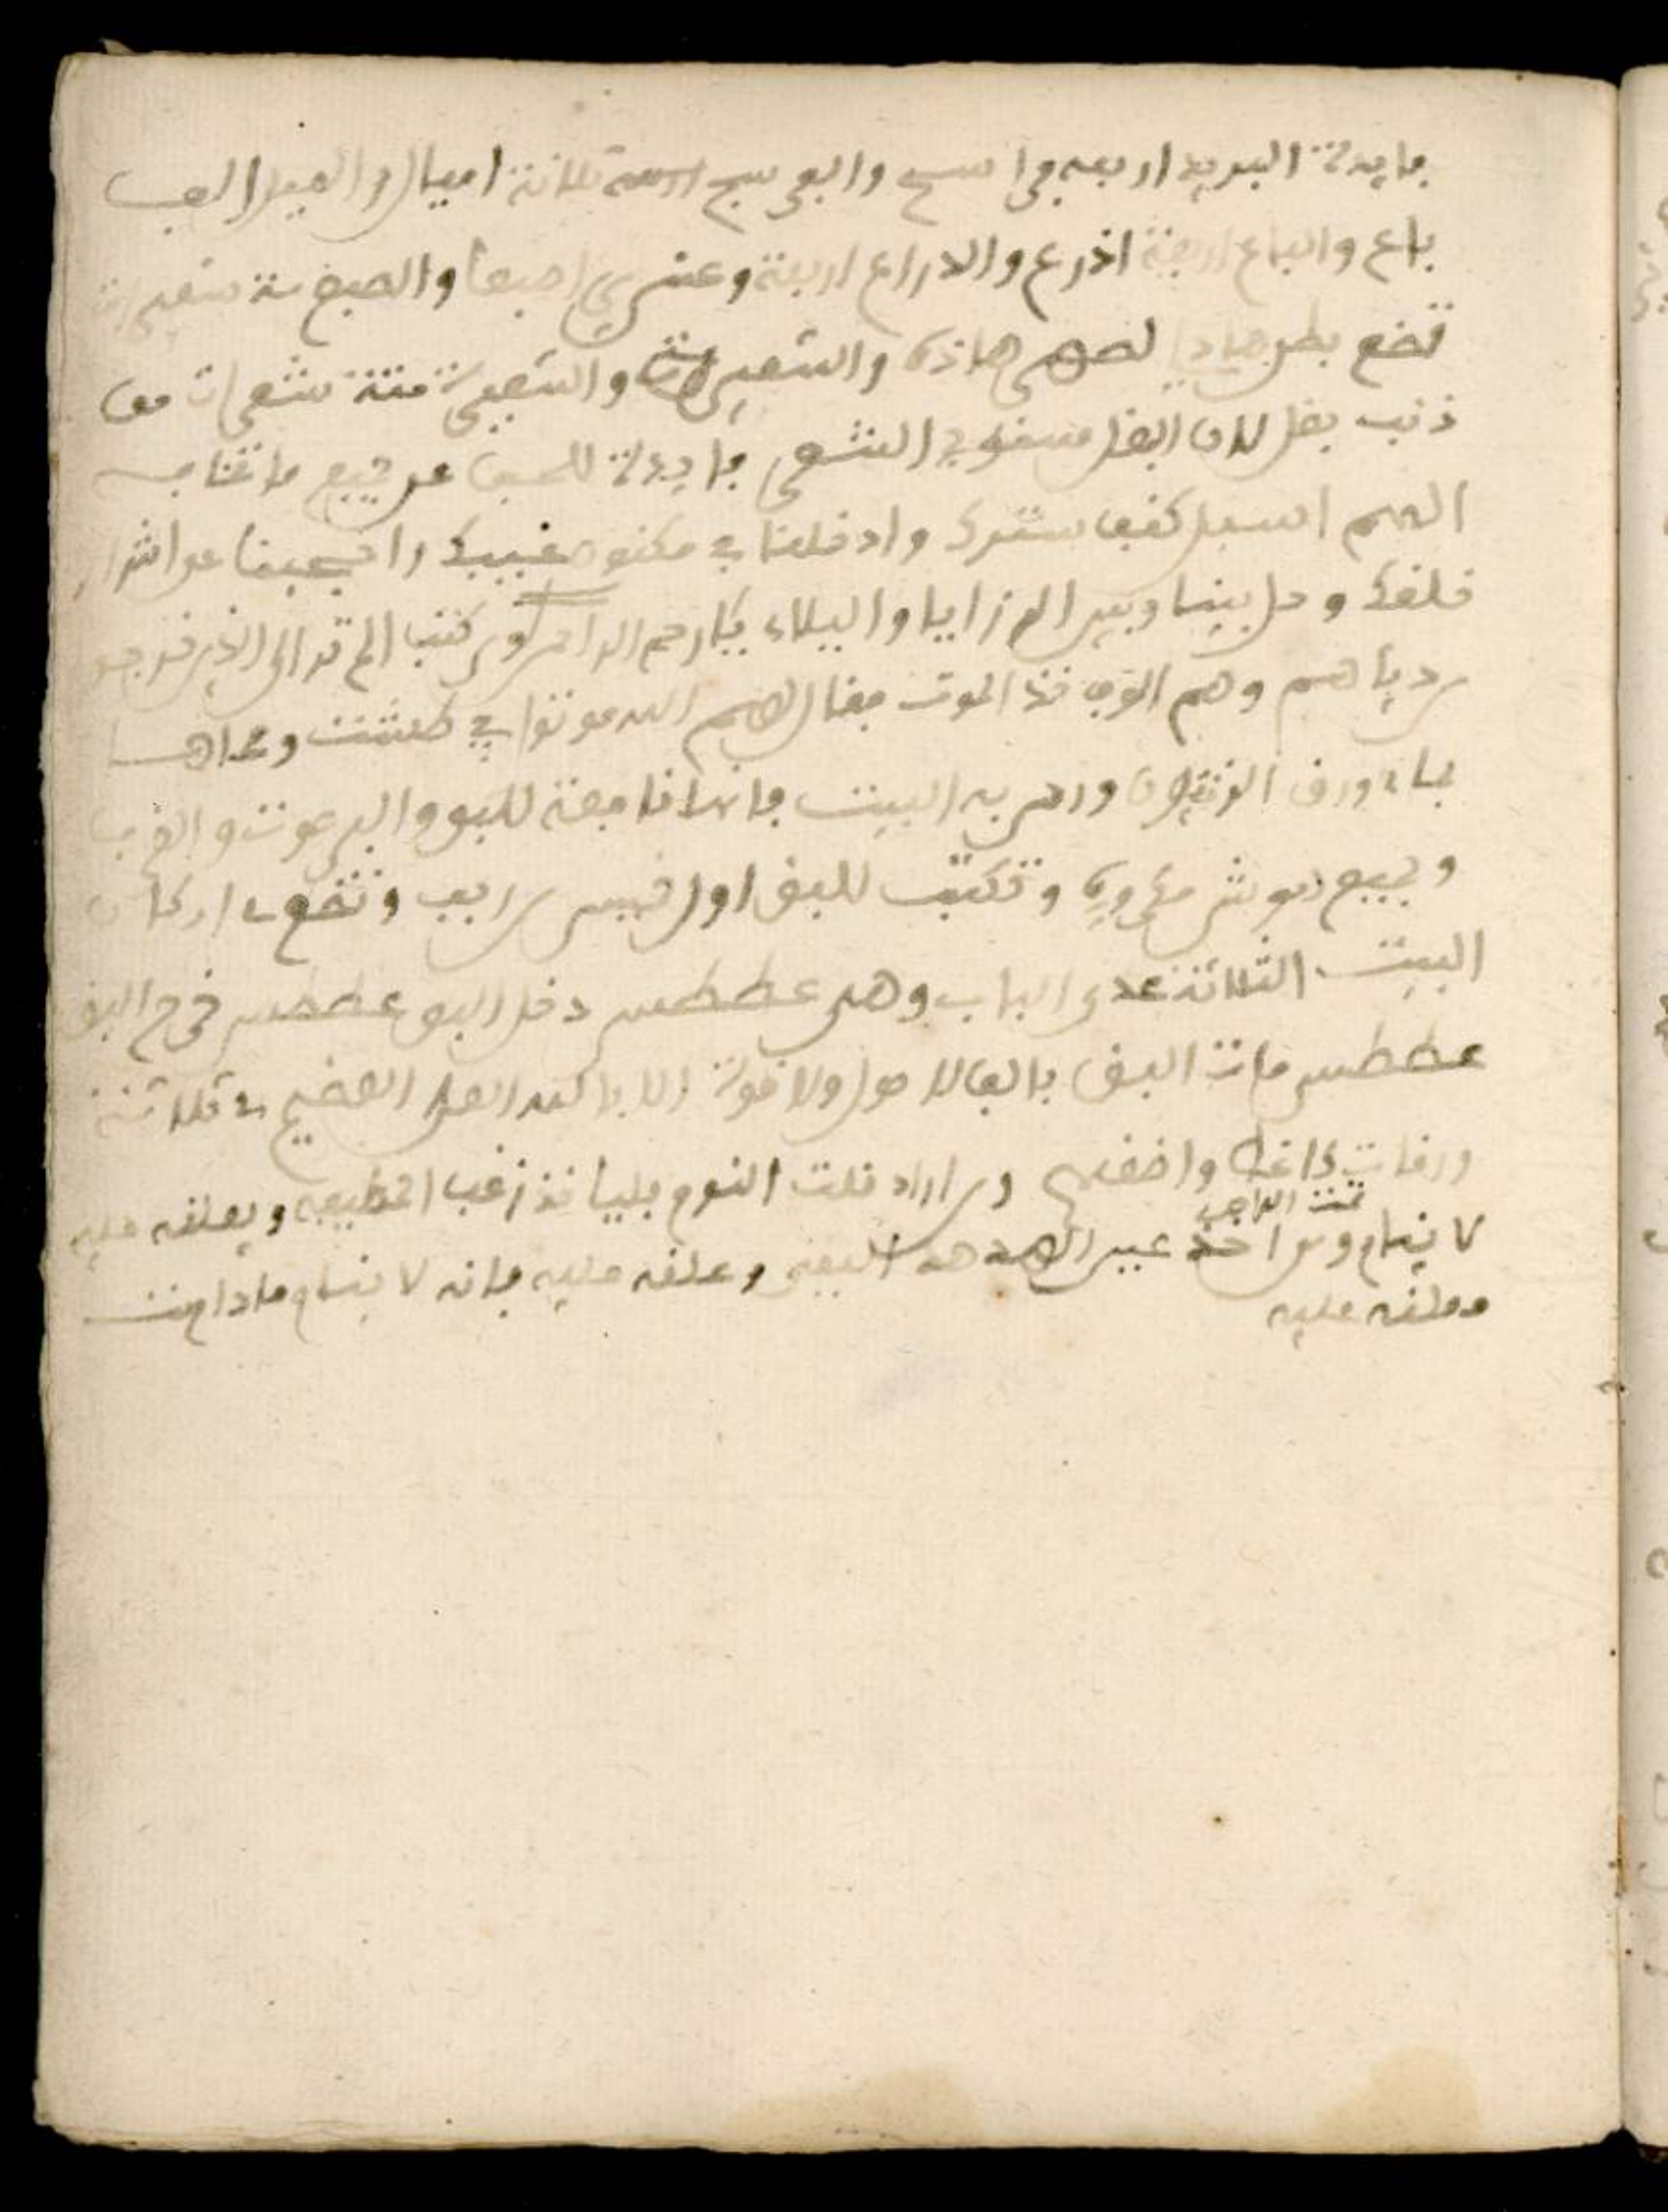 فايدة البريد اربعه فراسخ والفرسخ ثلاثة اميال والميل الف
باع والباع اربعة اذرع والاراع اربعة وعشرين اصبعا والصبع ستة شعيرات
تضع بطن هاذا لضهر هاذه والشعيرة ستة شعرات من
ذنب بغل لان البغل الشعر فايدة للحبس عن جميع ما تخاف
اللهم اسبل كنف سترك وادخلنا في مكنون غيبك واحجبنا عن اشرار
خلقك وحل بيننا وبين الرزايا والبلاء يا ارحم الراحمين كتب الم تر الى الذين خرجوا
من دياهم وهم الوف حذر الموت فقال لهم الله موتوا في طشت ومحاها
بماء ورق الزيتون ورش به البيت فانها نافعة للبق والبرعوث والعقرب
وجميع وتكتب للبق اول خميس وتضع في اركان
البيت الثلاثة عدى الباب وهي عططس دخل البق عططس خرج البق
عططس مات البق بالف لا حول ولا قوة الا بالله العلي العضيم في ثلاثة
ورقات كاغط ومن اراد قلت النوم فليا خذ زغب ويعلقه عليه
لا ينام ومن اخذ عين الهدهد اليمنى وعلقه عليه فانه لا ينام مادامت
معلقه عليه